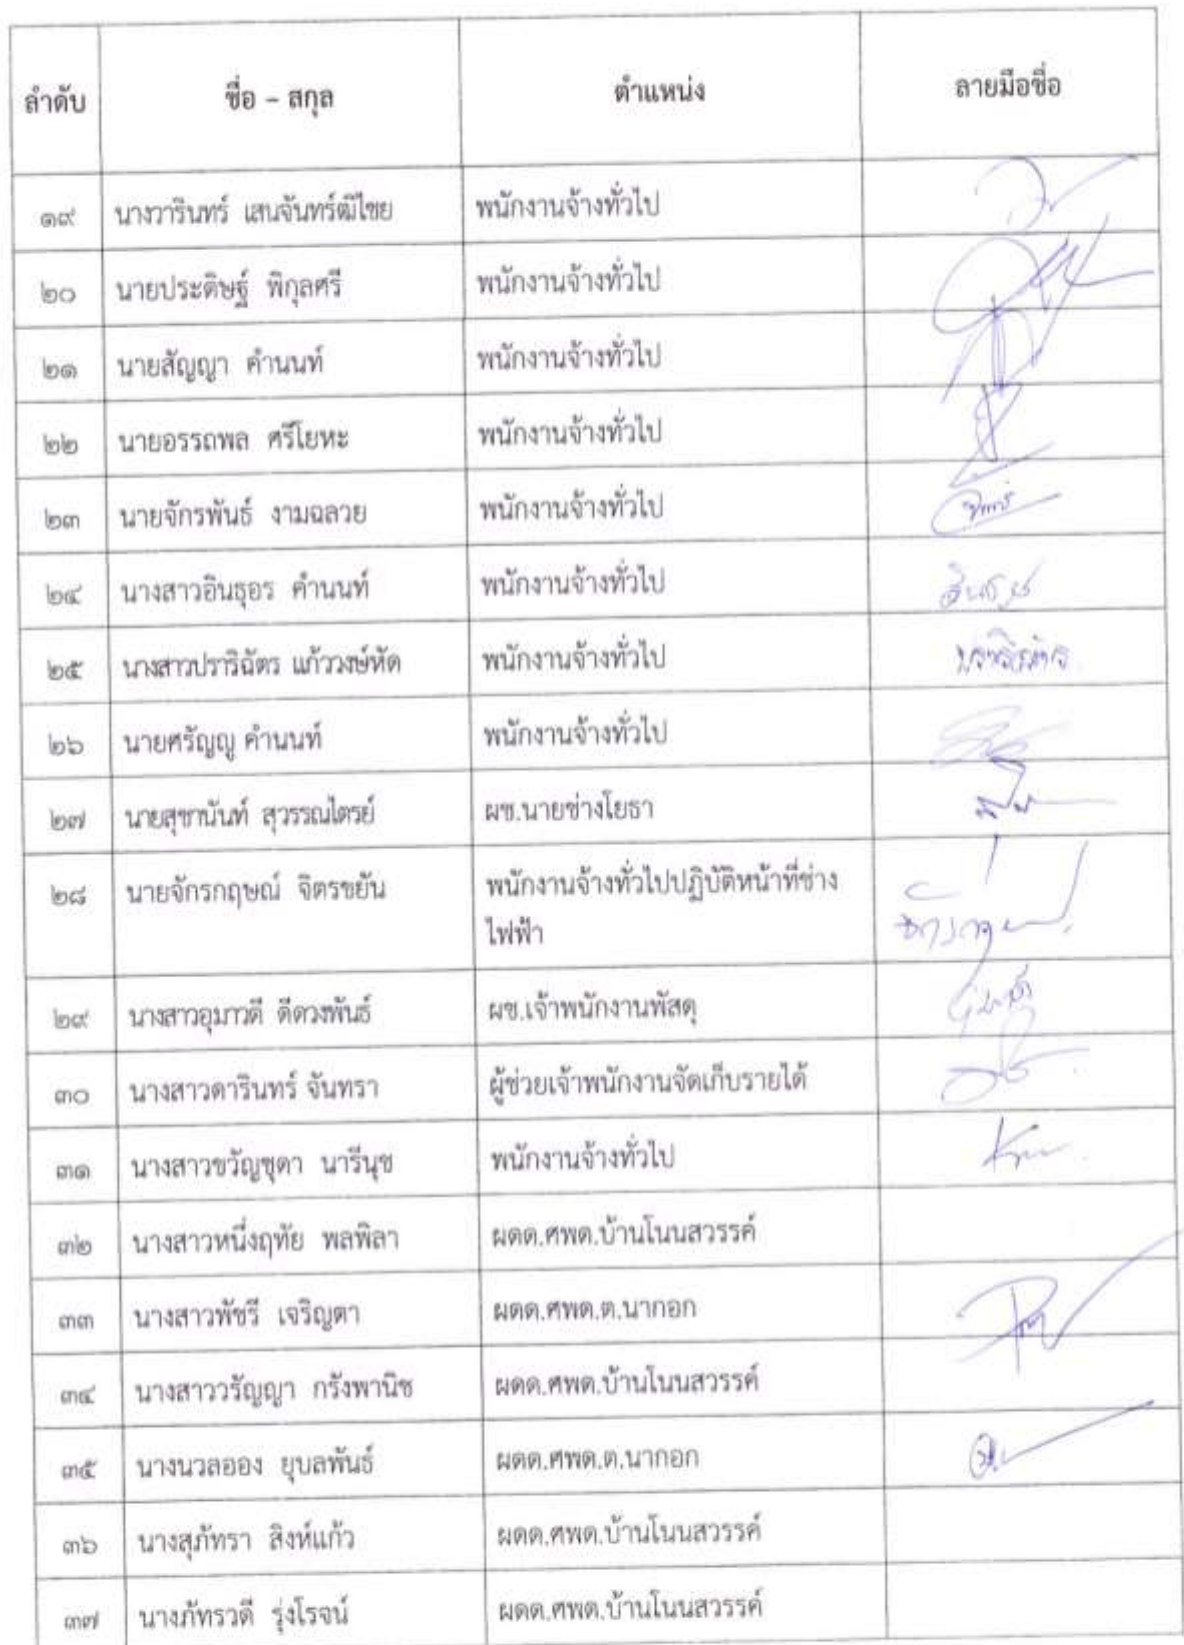 ลำดับ ชื่อ – สกุล ตำแหน่ง ลายมือชื่อ
๑๙ นางวารินทร์ เสนจันทร์ฒิไชย พนักงานจ้างทั่วไป
๒๐ นายประดิษฐ์ พิกุลศรี พนักงานจ้างทั่วไป
๒๑ นายสัญญา คำนนท์ พนักงานจ้างทั่วไป
๒๒ นายอรรถพล ศรีโยหะ พนักงานจ้างทั่วไป
๒๓ นายจักรพันธ์ งามฉลวย พนักงานจ้างทั่วไป
๒๔ นางสาวอินธุอร คำนนท์ พนักงานจ้างทั่วไป
๒๕ นางสาวปราริฉัตร แก้ววงษ์หัด พนักงานจ้างทั่วไป
๒๖ นายศรัญญู คำนนท์ พนักงานจ้างทั่วไป
๒๗ นายสุชานันท์ สุวรรณไตรย์ ผช.นายช่างโยธา
๒๘ นายจักรกฤษณ์ จิตรขยัน พนักงานจ้างทั่วไปปฏิบัติหน้าที่ช่าง
ไฟฟ้า
๒๙ นางสาวอุมาวดี ดีดวงพันธ์ ผช.เจ้าพนักงานพัสดุ
๓๐ นางสาวดารินทร์ จันทรา ผู้ช่วยเจ้าพนักงานจัดเก็บรายได้
๓๑ นางสาวขวัญชุดา นารีนุช พนักงานจ้างทั่วไป
๓๒ นางสาวหนึ่งฤทัย พลพิลา ผดด.ศพด.บ้านโนนสวรรค์
๓๓ นางสาวพัชรี เจริญตา ผดด.ศพด.ต.นากอก
๓๔ นางสาววรัญญา กรังพานิช ผดด.ศพด.บ้านโนนสวรรค์
๓๕ นางนวลออง ยุบลพันธ์ ผดด.ศพด.ต.นากอก
๓๖ นางสุภัทรา สิงห์แก้ว ผดด.ศพด.บ้านโนนสวรรค์
๓๗ นางภัทรวดี รุ่งโรจน์ ผดด.ศพด.บ้านโนนสวรรค์